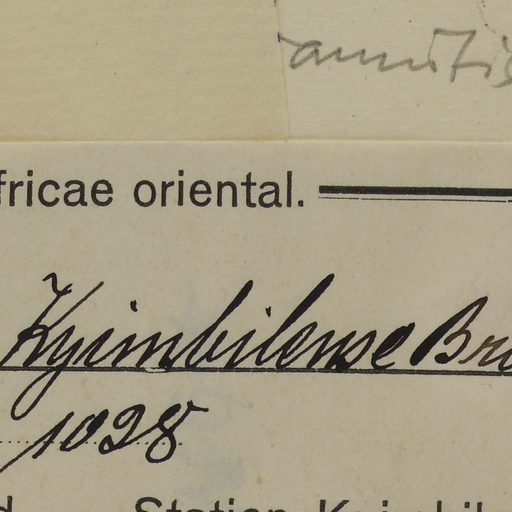 fricae oriental.
Kyimbilense Br
1028
Station Kyimbil